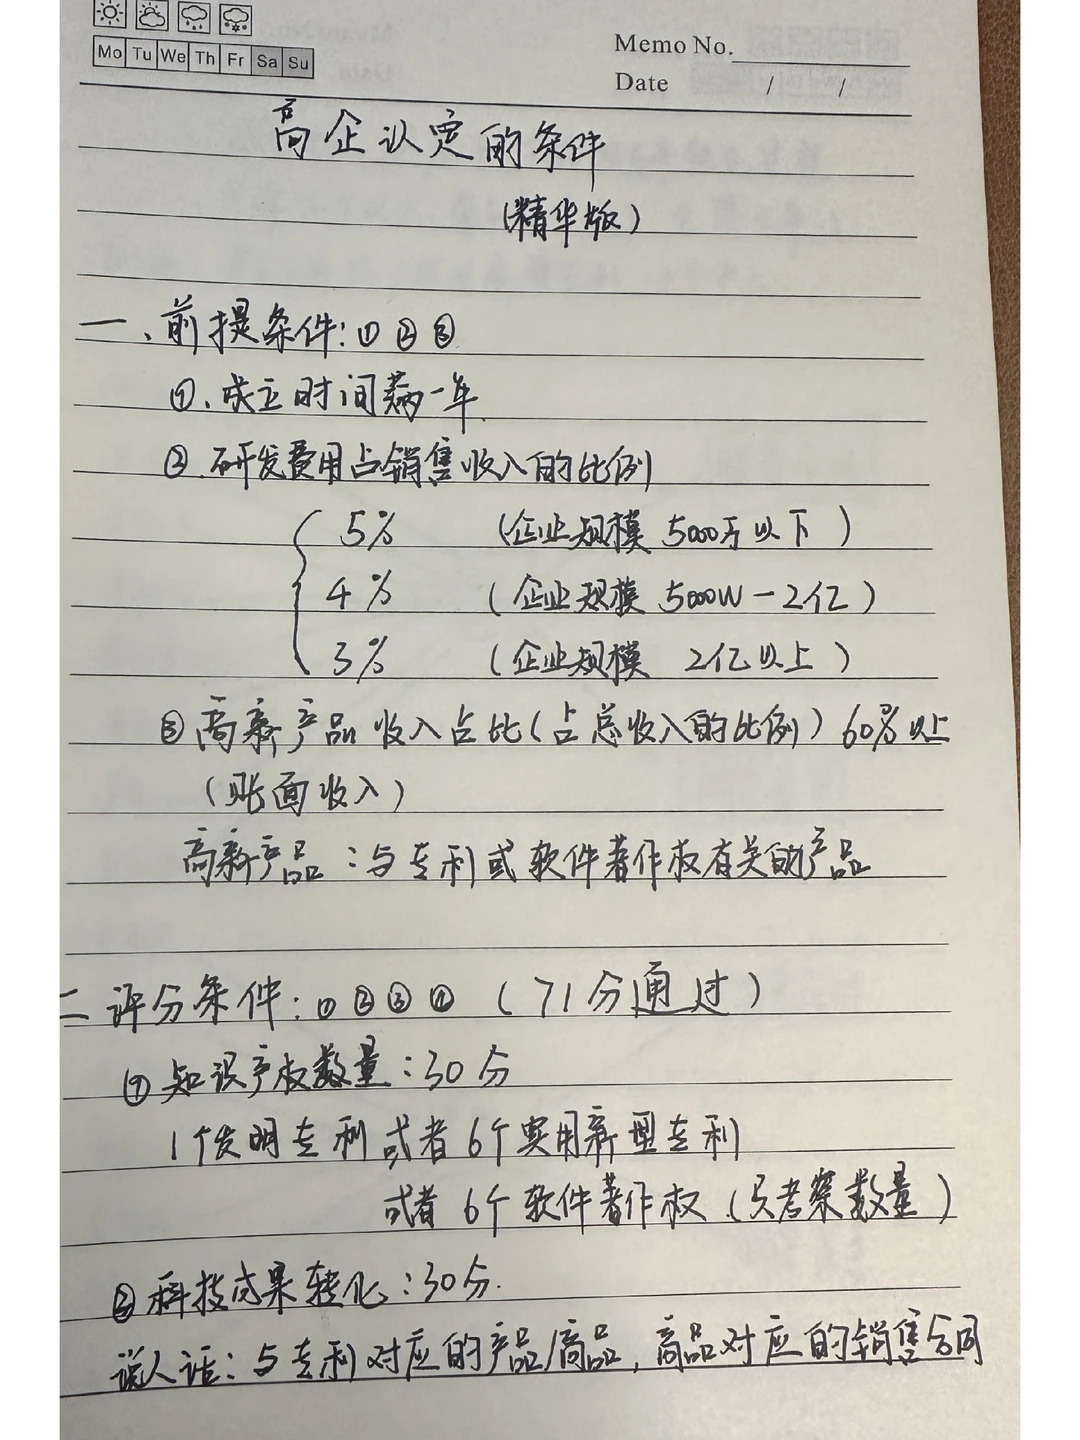 Mo Tu We Th Fr Sa Su
Memo No.
Date / /
高企认定的条件
(精华版)
一、前提条件:①②③
①、成立时间满一年.
②.研发费用占销售收入的比例
5% (企业规模 5000万以下)
4% (企业规模 5000W-2亿)
3% (企业规模 2亿以上)
③高新产品收入占比(占总收入的比例)60%以上
(账面收入)
高新产品:与专利或软件著作权有关的产品
二评分条件:①②③④(71分通过)
①知识产权数量:30分
1个发明专利或者6个实用新型专利
或者6个软件著作权.(只考察数量)
②科技成果转化:30分.
说人话:与专利对应的产品/商品,商品对应的销售合同